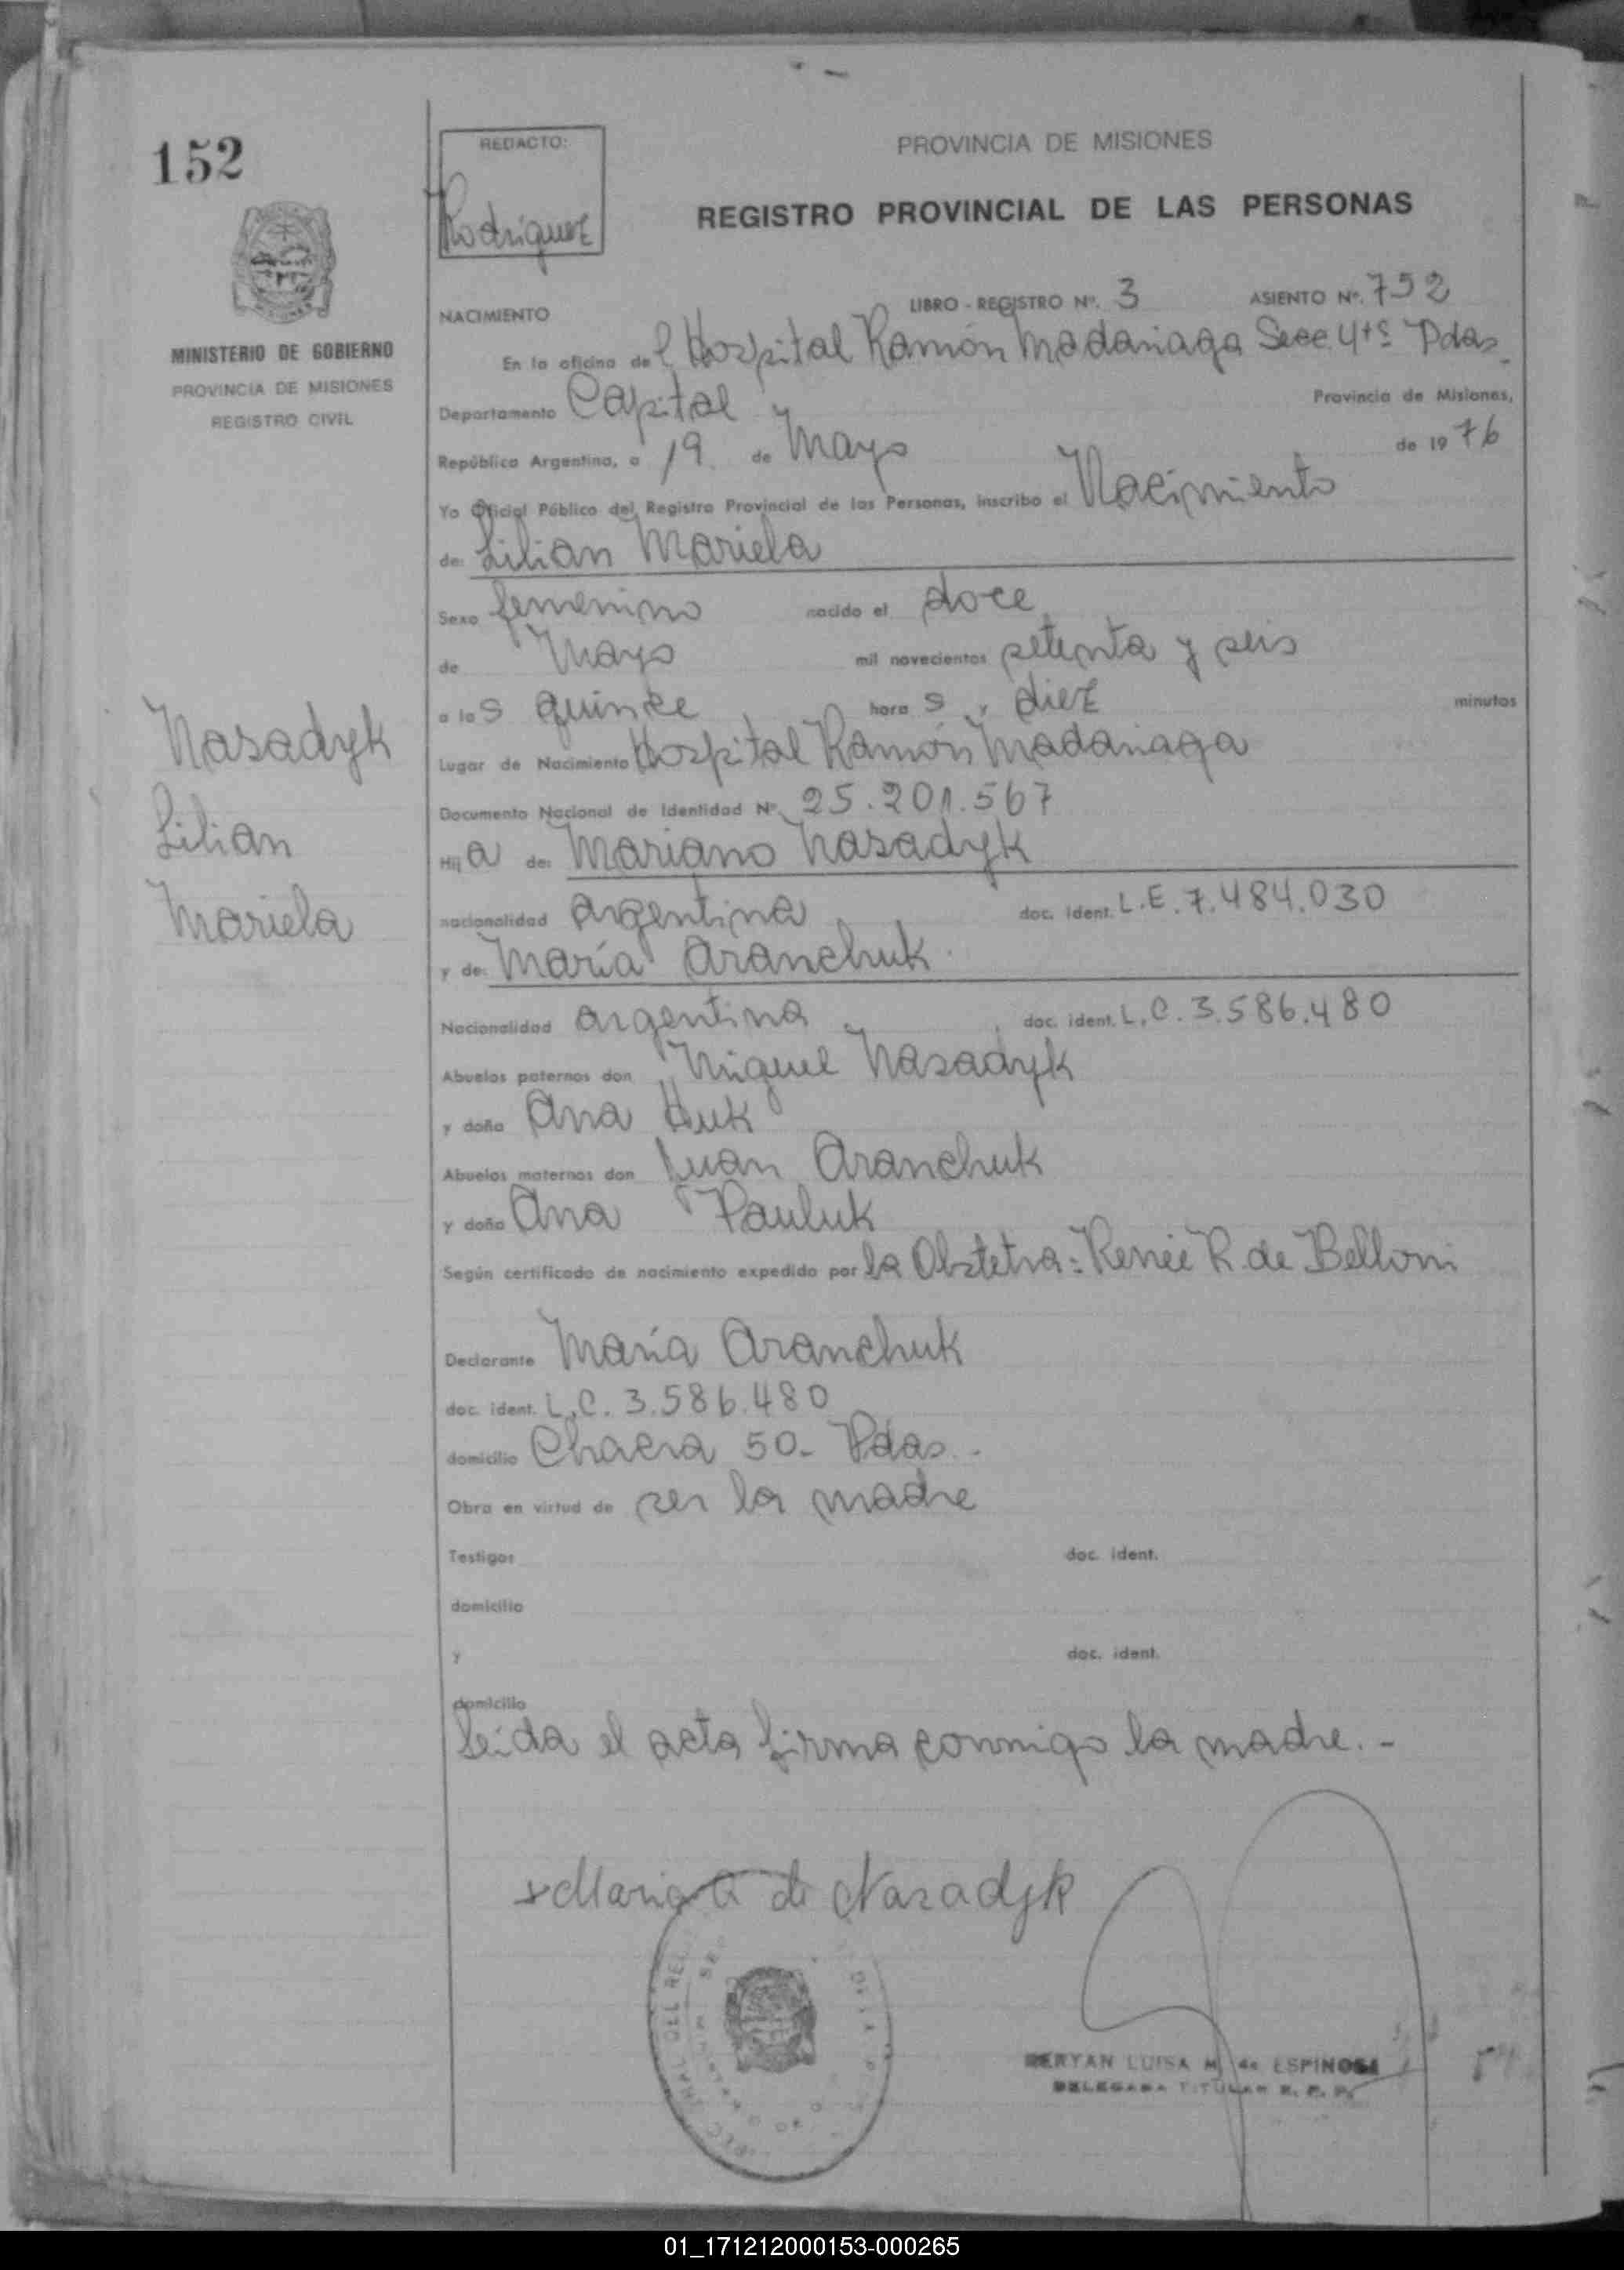 152
REDACTO:
Rodriguez
PROVINCIA DE MISIONES
REGISTRO PROVINCIAL DE LAS PERSONAS
MINISTERIO DE GOBIERNO
PROVINCIA DE MISIONES
REGISTRO CIVIL
NACIMIENTO
LIBRO - REGISTRO Nº. 3 ASIENTO Nº. 752
En la oficina del Hospital Ramón Madariaga Secc 4ta Pdas.
Departamento Capital Provincia de Misiones,
República Argentina, a 19 de Mayo de 1976
Yo Oficial Público del Registro Provincial de las Personas, inscribo el Nacimiento
de: Lilian Mariela
Sexo femenino nacido el doce
de Mayo mil novecientos setenta y seis
a las quince horas y diez minutos
Nasadyk
Lilian
Mariela
Lugar de Nacimiento Hospital Ramón Madariaga
Documento Nacional de Identidad Nº 25.201.567
Hija de: Mariano Nasadyk
nacionalidad argentina doc. ident. L.E. 7.484.030
y de: María Aranchuk
Nacionalidad argentina doc. ident. L.C. 3.586.480
Abuelos paternos don Miguel Nasadyk
y doña Ana Huk
Abuelos maternos don Juan Aranchuk
y doña Ana Pauluk
Según certificado de nacimiento expedido por la Obstetra: Renée R. de Belloni
Declarante María Aranchuk
doc. ident. L.C. 3.586.480
domicilio Chacra 50- Pdas.-
Obra en virtud de ser la madre
Testigos doc. ident.
domicilio
y doc. ident.
domicilio
Leida el acta firma conmigo la madre.-
x Maria A de Nasadyk
LUISA M. de ESPINOSA
DELEGADA TITULAR R. P. P.
01_171212000153-000265